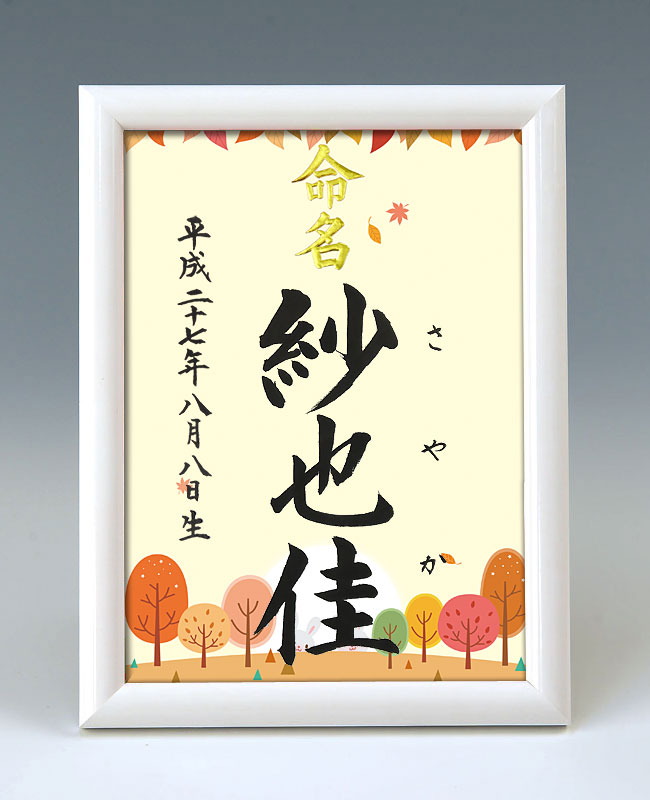 命名
さやか
紗也佳
平成二十七年八月八日生